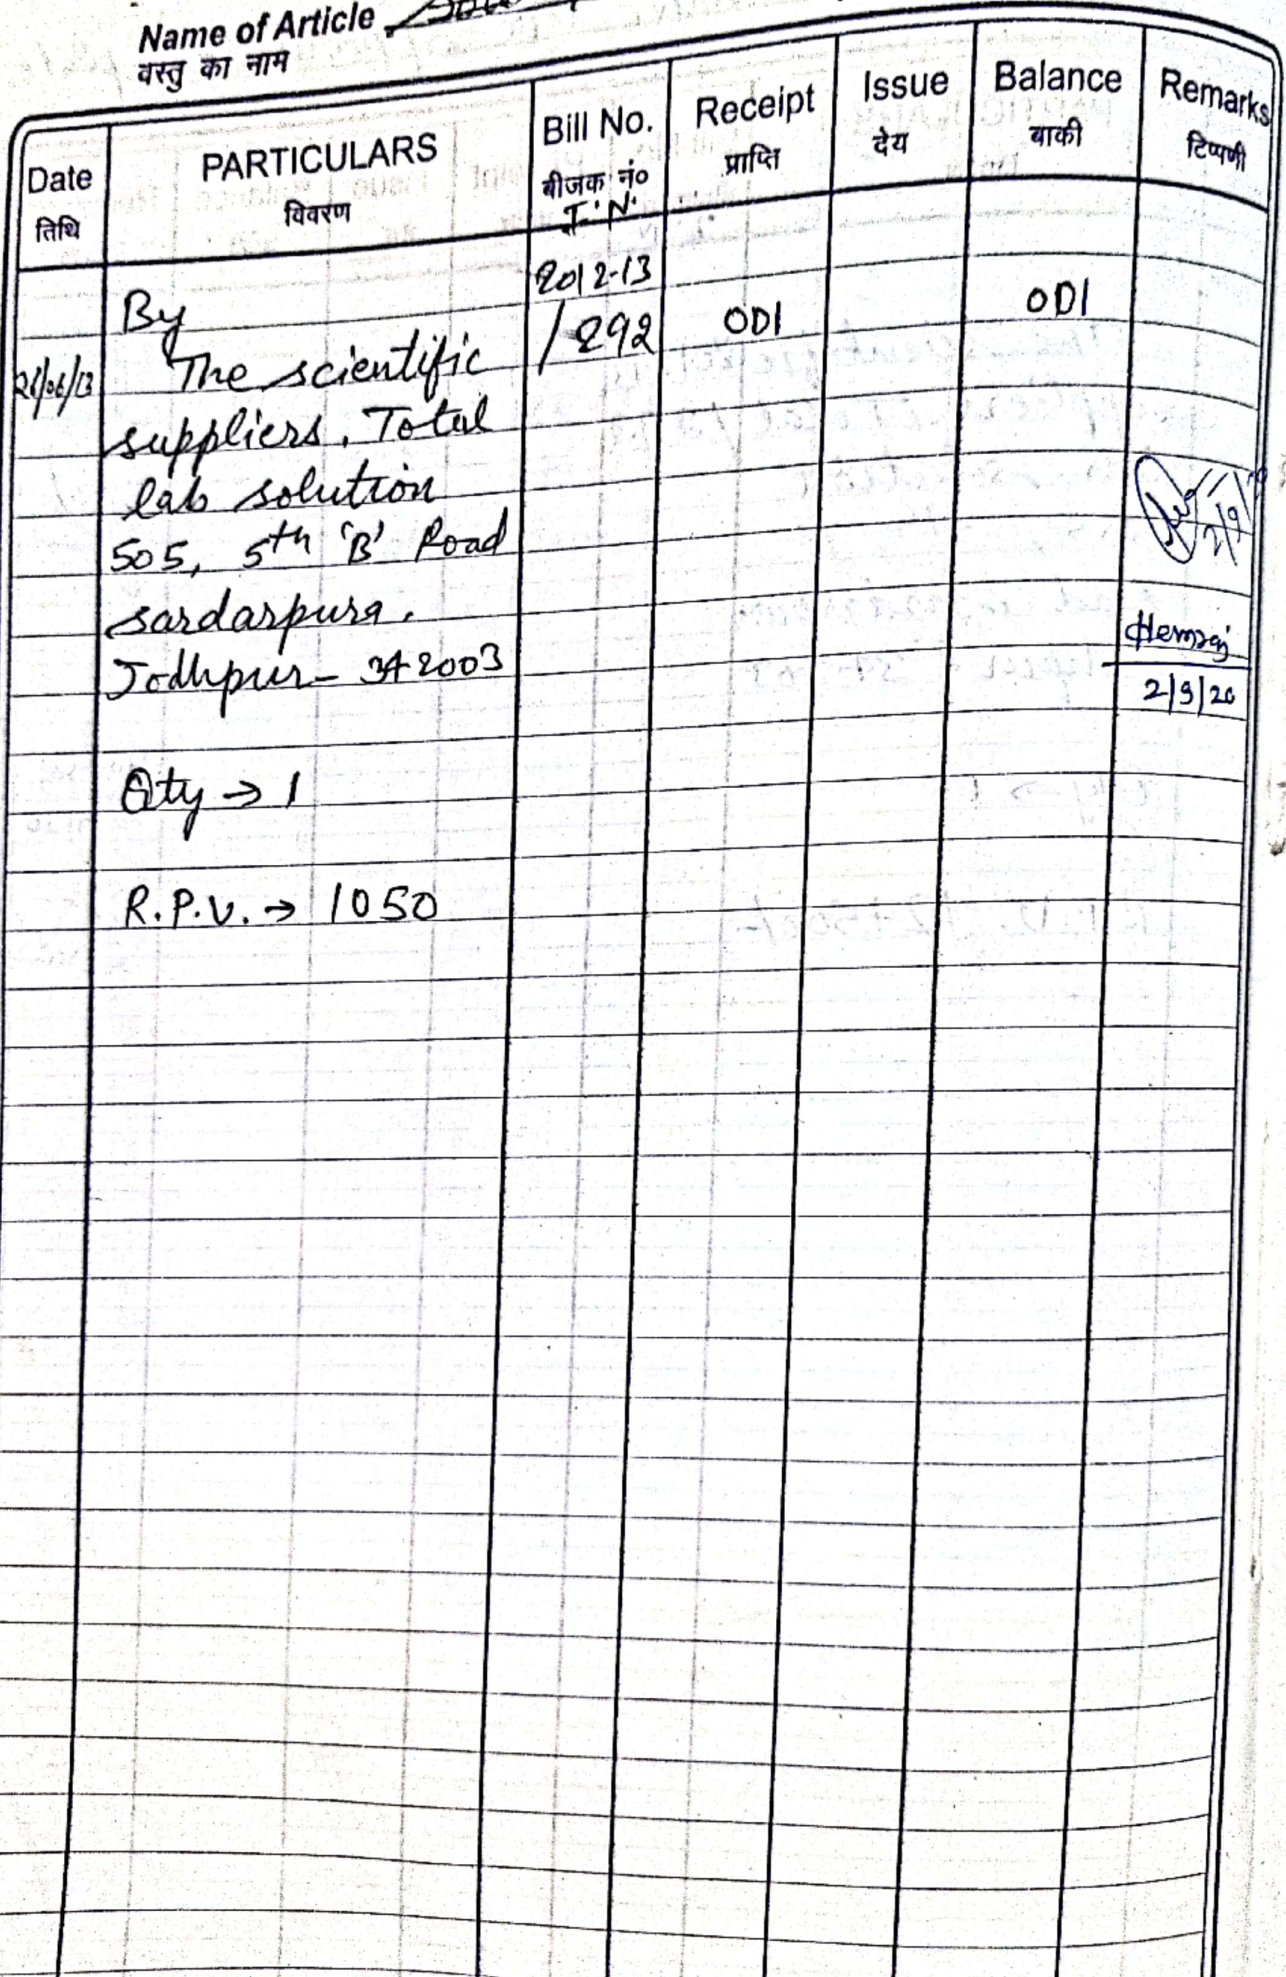 Name of Article
वस्तु का नाम
Date
तिथि
PARTICULARS
विवरण
Bill No.
बीजक नं०
I.N.
Receipt
प्राप्ति
Issue
देय
Balance
बाकी
Remarks
टिप्पणी
By
2012-13
/292
001
001
The scientific
suppliers. Total
lab solution
505, 5th 'B' Road
sardarpura.
Jodhpur - 342003
Hemraj
2/9/20
Qty → 1
R.P.V. → 1050